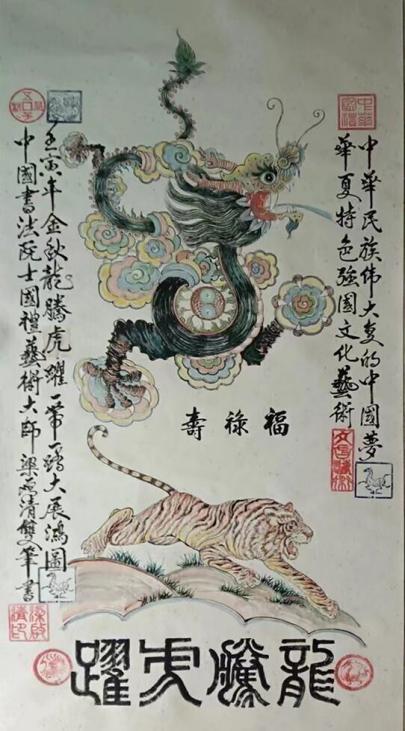 中华民族伟大复的中國夢
華夏特色強國文化藝術
福祿壽
龍騰虎躍
壬寅年金秋龍騰虎躍一帶一路大展鴻圖
中國書法院士國禮藝術大師梁清雙筆書